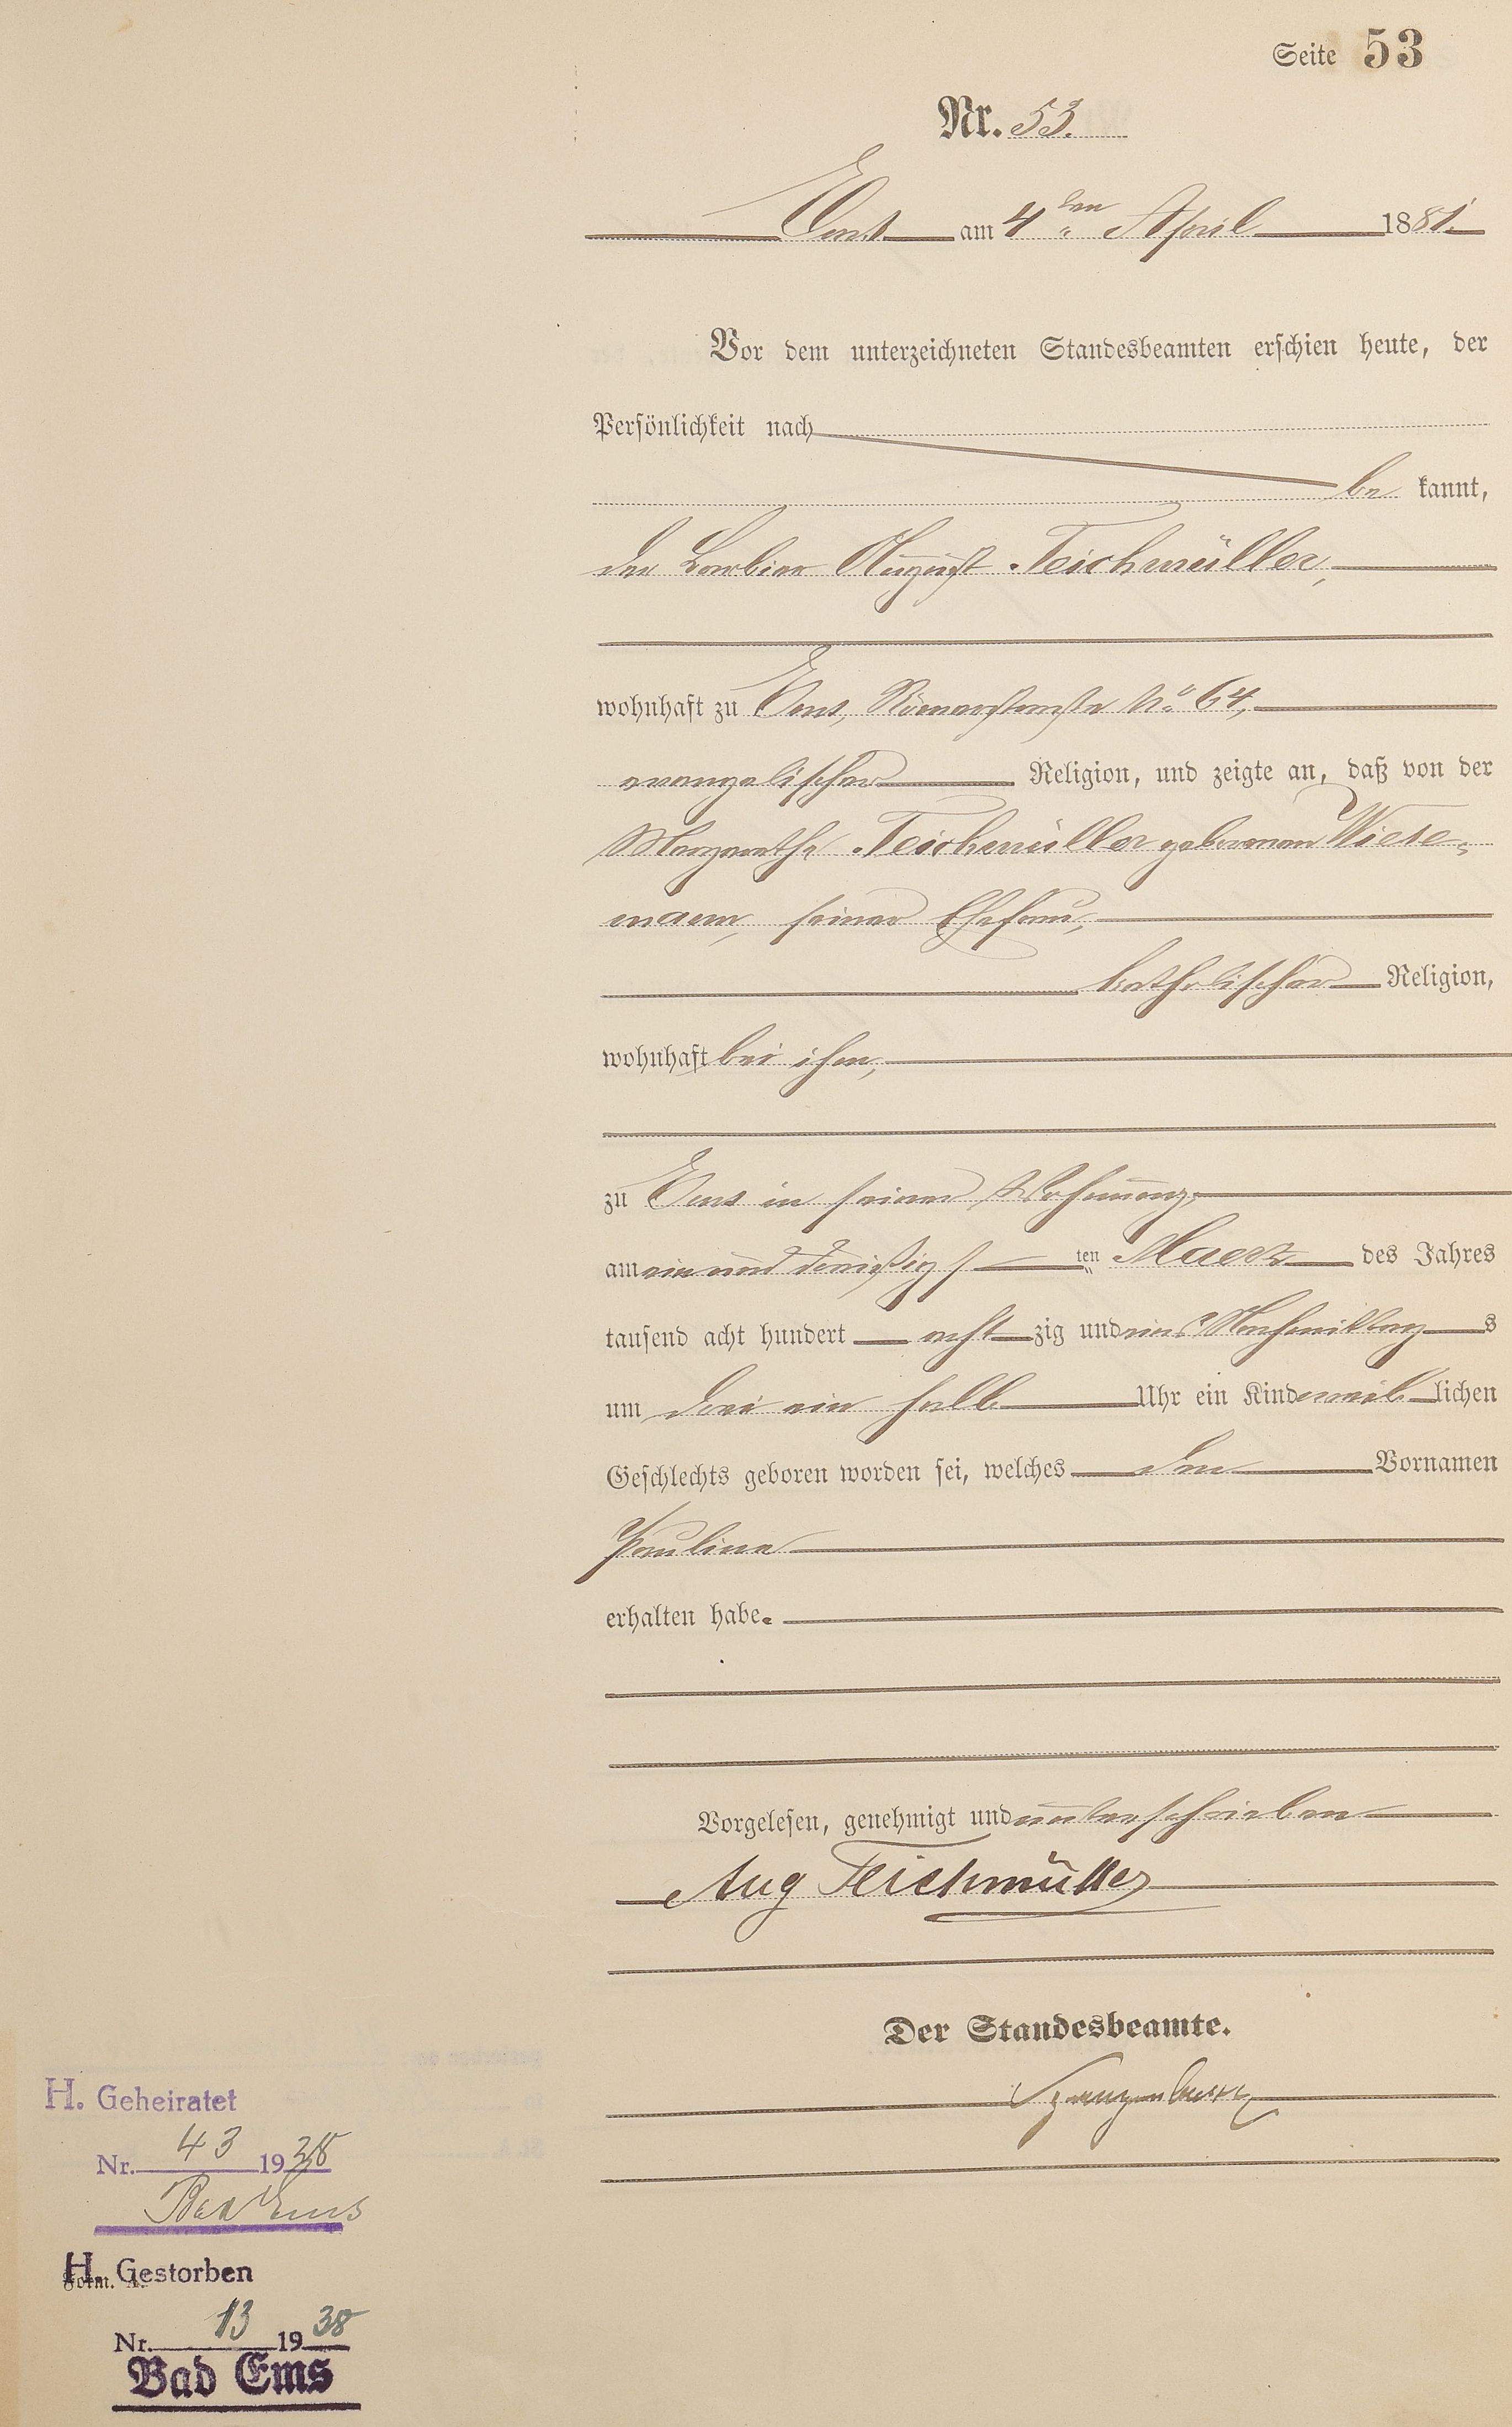 Seite 53
Nr. 53.
Ems am 4ten April 1881.
Vor dem unterzeichneten Standesbeamten erschien heute, der
Persönlichkeit nach
be kannt,
der Barbier August Teichmüller,
wohnhaft zu Ems, Römerstraße No 64,
evangelischer Religion, und zeigte an, daß von der
Margarethe Teichmüller geborenen Wiese-
mann, seiner Ehefrau,
katholischer Religion,
wohnhaft bei ihm,
zu Ems in seiner Wohnung,
am ein und dreißigsten Maerz des Jahres
tausend acht hundert acht zig und ein Nachmittags
um drei ein halb Uhr ein Kind weiblichen
Geschlechts geboren worden sei, welches den Vornamen
Paulina
erhalten habe.
Vorgelesen, genehmigt und unterschrieben
Aug Teichmüller
Der Standesbeamte.
H. Geheiratet
Nr. 43 19
Bad Ems
H. Gestorben
Form. A.
Nr. 13 1938
Bad Ems